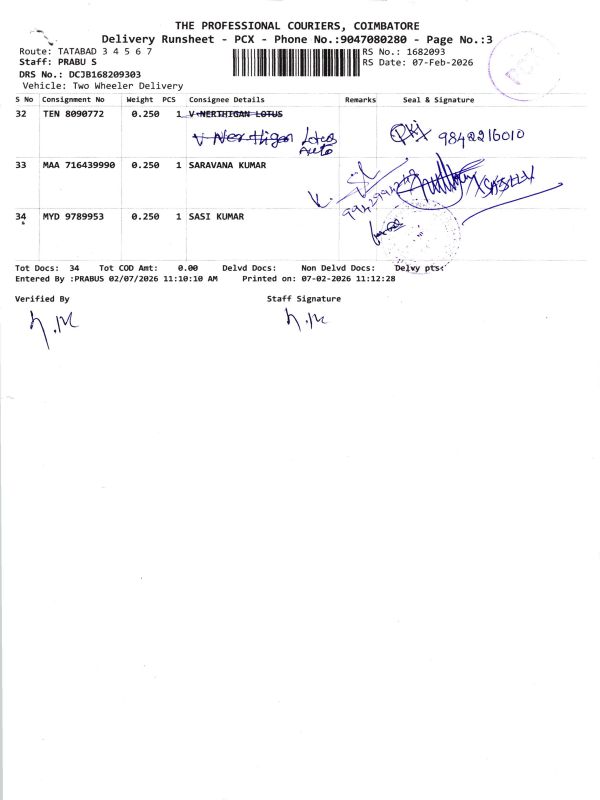 THE PROFESSIONAL COURIERS, COIMBATORE
Delivery Runsheet - PCX - Phone No.:9047080280 - Page No.:3
Route: TATABAD 3 4 5 6 7 RS No.: 1682093
Staff: PRABU S RS Date: 07-Feb-2026
DRS No.: DCJB168209303
Vehicle: Two Wheeler Delivery
S No Consignment No Weight PCS Consignee Details Remarks Seal & Signature
32 TEN 8090772 0.250 1 V NERTHIGAN LOTUS
V Nerthigan Lotus
Auto
9842216010
33 MAA 716439990 0.250 1 SARAVANA KUMAR
34 MYD 9789953 0.250 1 SASI KUMAR
Tot Docs: 34 Tot COD Amt: 0.00 Delvd Docs: Non Delvd Docs: Delvy pts:
Entered By :PRABUS 02/07/2026 11:10:10 AM Printed on: 07-02-2026 11:12:28
Verified By Staff Signature